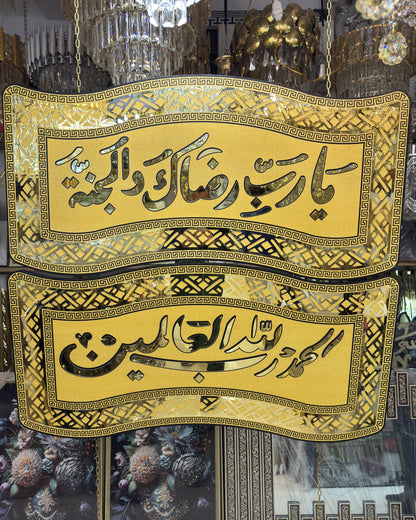 يا ربّ رضاك والجنّة
الحمد لله رب العالمين